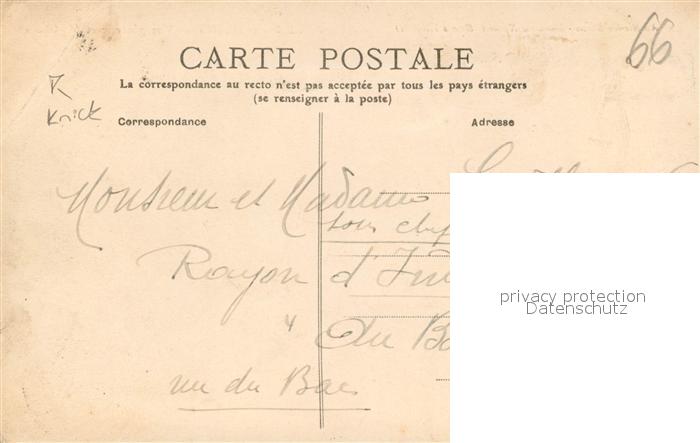 66
CARTE POSTALE
La correspondance au recto n'est pas acceptée par tous les pays étrangers
(se renseigner à la poste)
Knick
Correspondance
Adresse
Monsieur et Madame
sous
Rayon d'
du
rue du Bac
privacy protection
Datenschutz